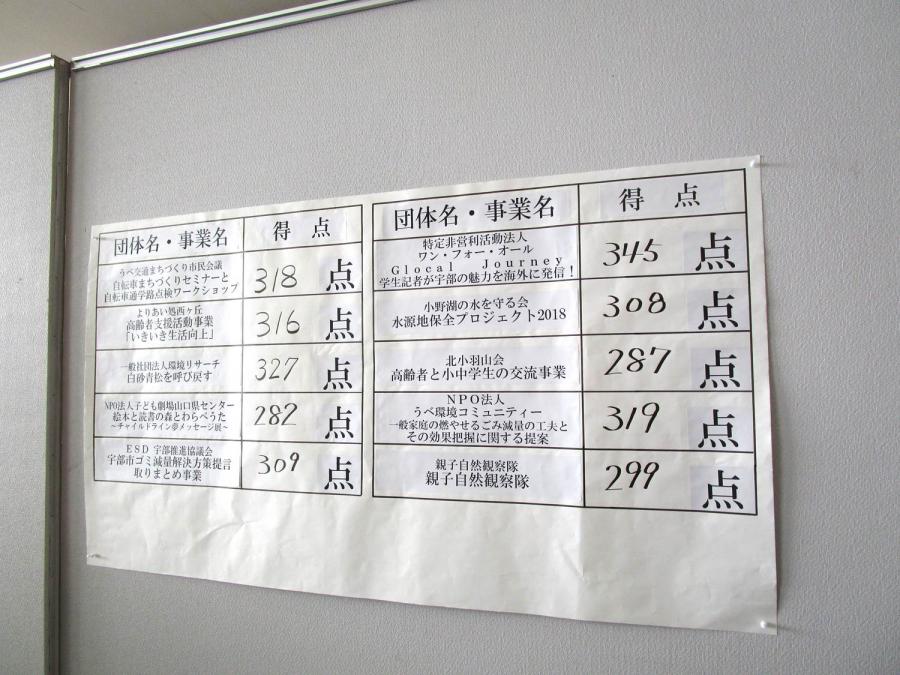 団体名・事業名 得点
うべ交通まちづくり市民会議
自転車まちづくりセミナーと
自転車通学路点検ワークショップ
318 点
よりあい処西ヶ丘
高齢者支援活動事業
「いきいき生活向上」
316 点
一般社団法人環境リサーチ
白砂青松を呼び戻す
327 点
NPO法人子ども劇場山口県センター
絵本と読書の森とわらべうた
～チャイルドライン夢メッセージ展～
282 点
ESD 宇部推進協議会
宇部市ゴミ減量解決方策提言
取りまとめ事業
309 点
団体名・事業名 得点
特定非営利活動法人
ワン・フォー・オール
Glocal Journey
学生記者が宇部の魅力を海外に発信！
345 点
小野湖の水を守る会
水源地保全プロジェクト2018
308 点
北小羽山会
高齢者と小中学生の交流事業
287 点
NPO法人
うべ環境コミュニティー
一般家庭の燃やせるごみ減量の工夫と
その効果把握に関する提案
319 点
親子自然観察隊
親子自然観察隊
299 点